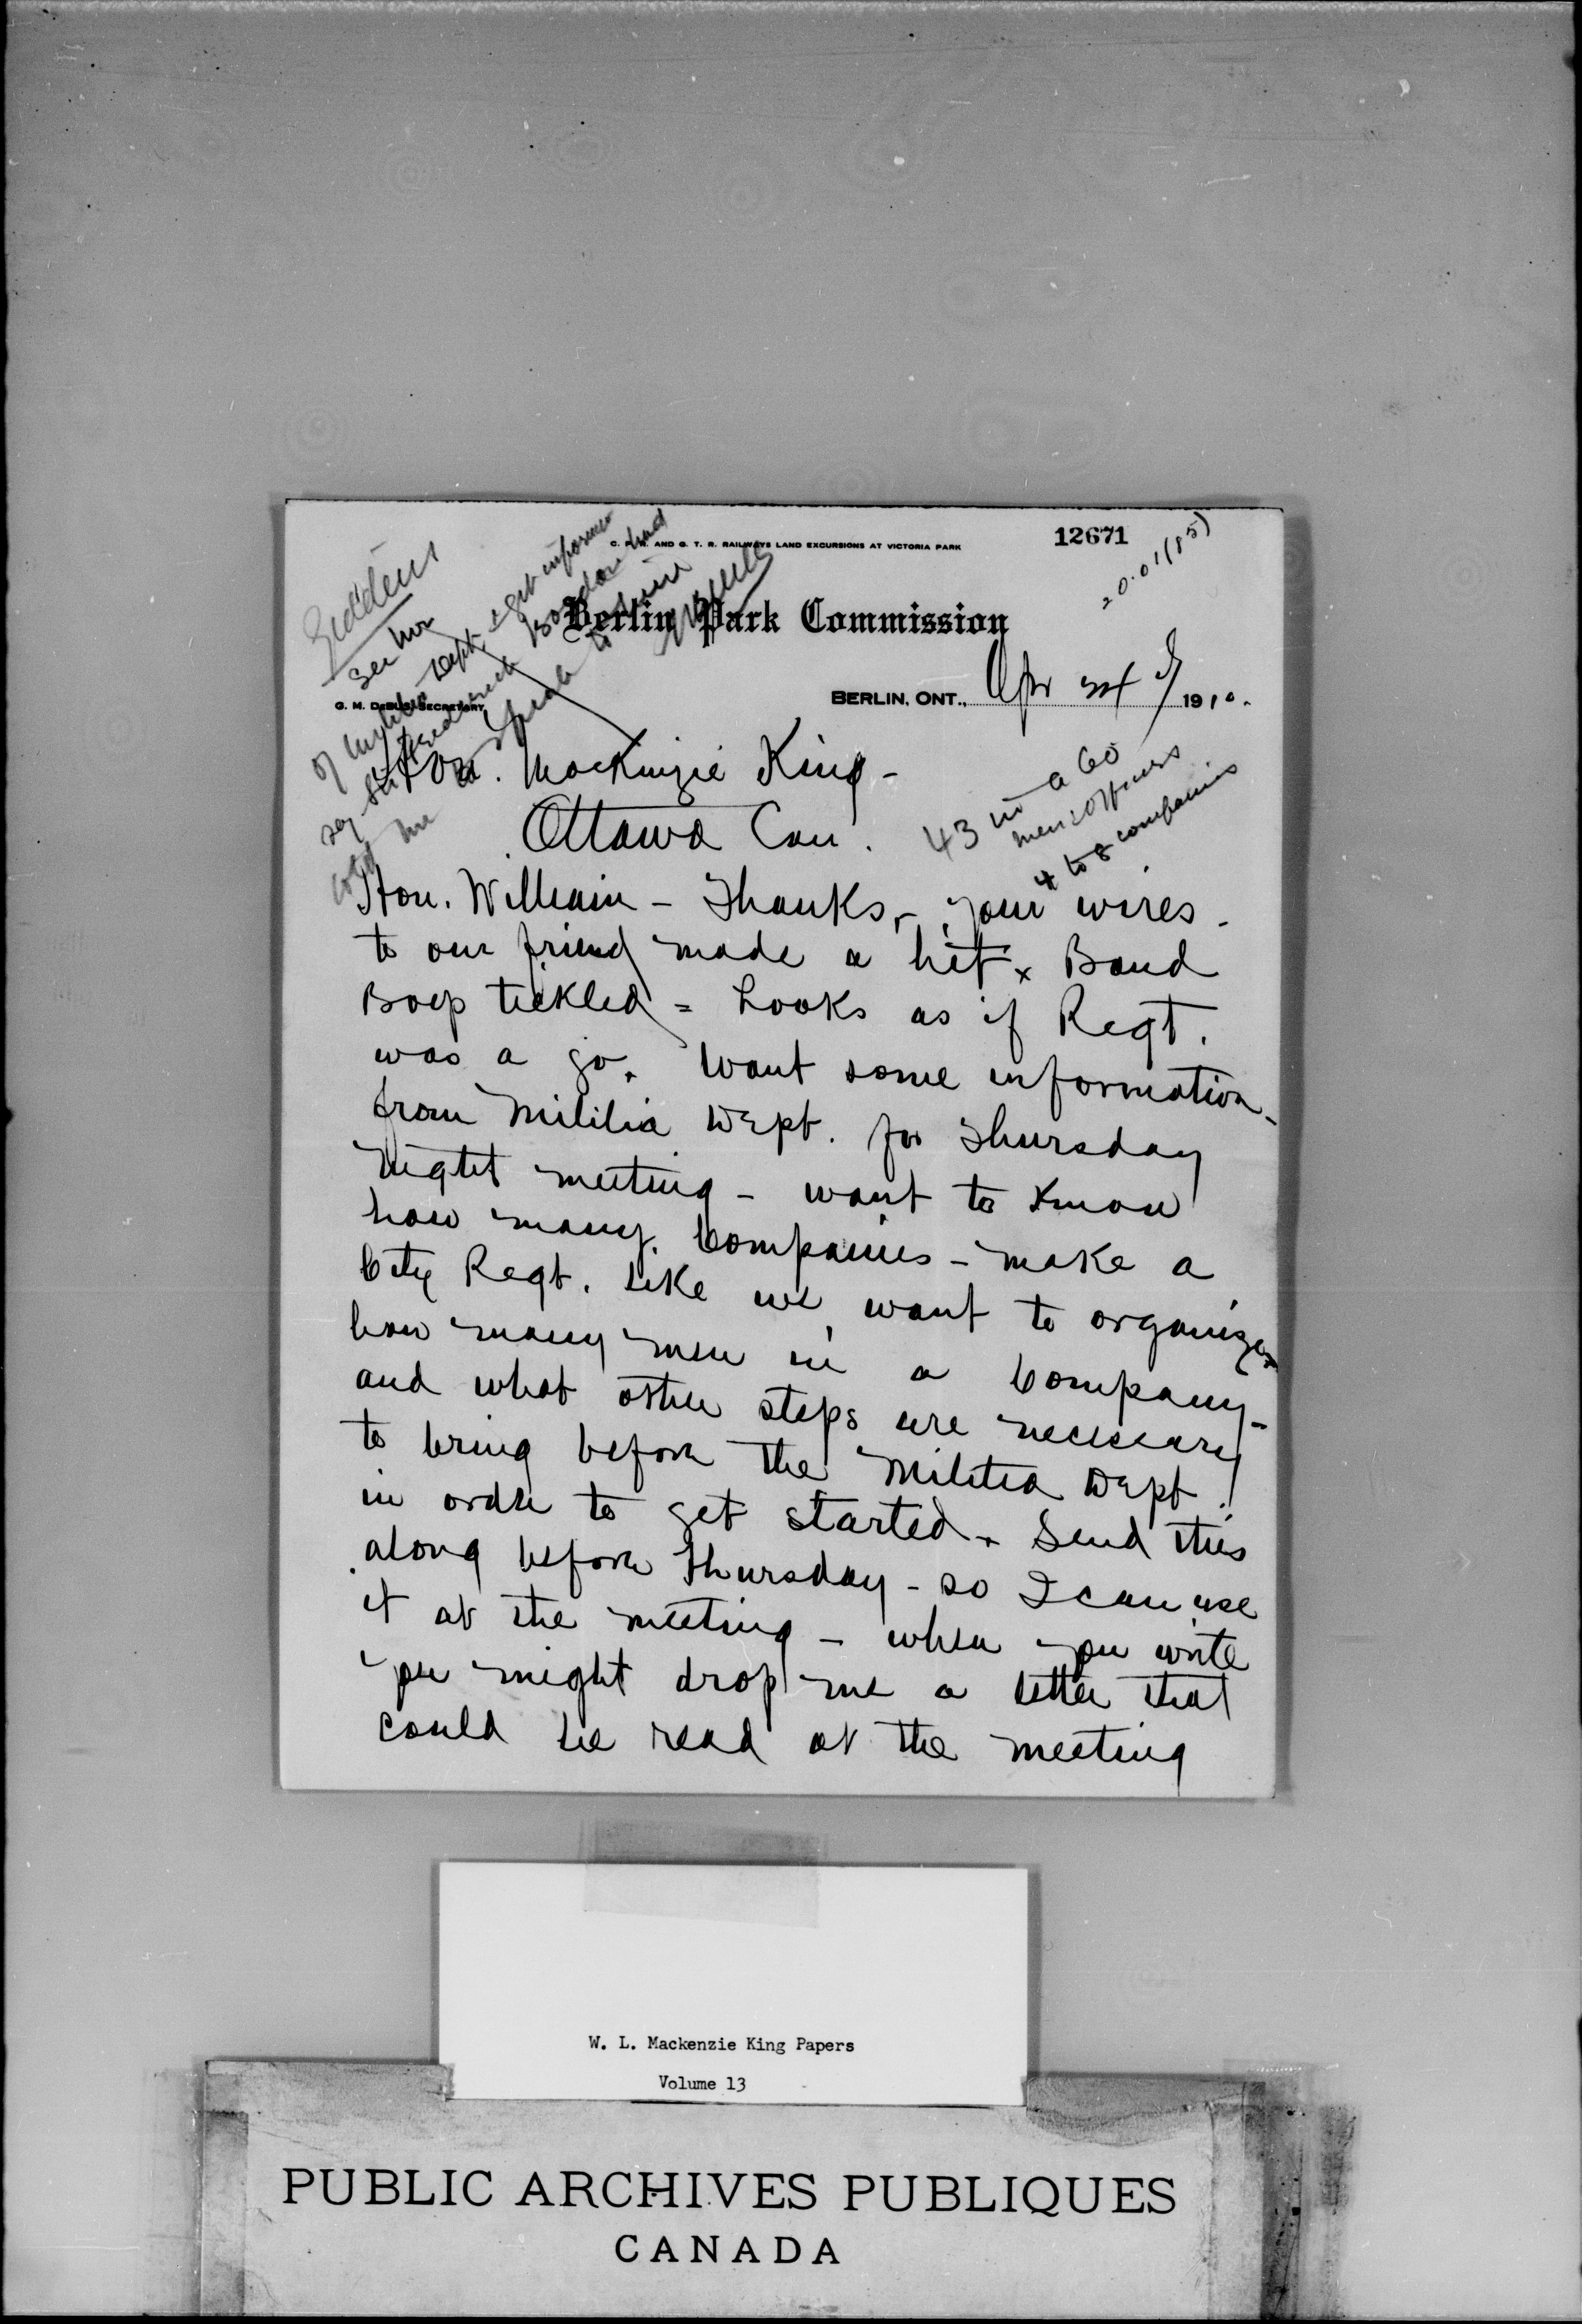 C. P. R. AND G. T. R. RAILWAYS LAND EXCURSIONS AT VICTORIA PARK
12671
Berlin Park Commission
G. M. DEBUS, SECRETARY,
BERLIN, ONT., Apr 1910.
Hon. MacKenzie King -
Ottawa Can.
43 in a Co
men & officers
4 to 8 companies
Hon. William - Thanks, - your wires
to our friend made a hit x Band
Boys tickled = Looks as if Regt.
was a go. Want some information -
from Militia Dept. for Thursday
night meeting - want to know
how many Companies - make a
City Regt. like we want to organize
how many men in a Company -
and what other steps are necessary
to bring before the Militia Dept.
in order to get started. Send this
along before Thursday - so I can use
it at the meeting - when you write
you might drop me a letter that
could be read at the meeting
W. L. Mackenzie King Papers
Volume 13
PUBLIC ARCHIVES PUBLIQUES
CANADA